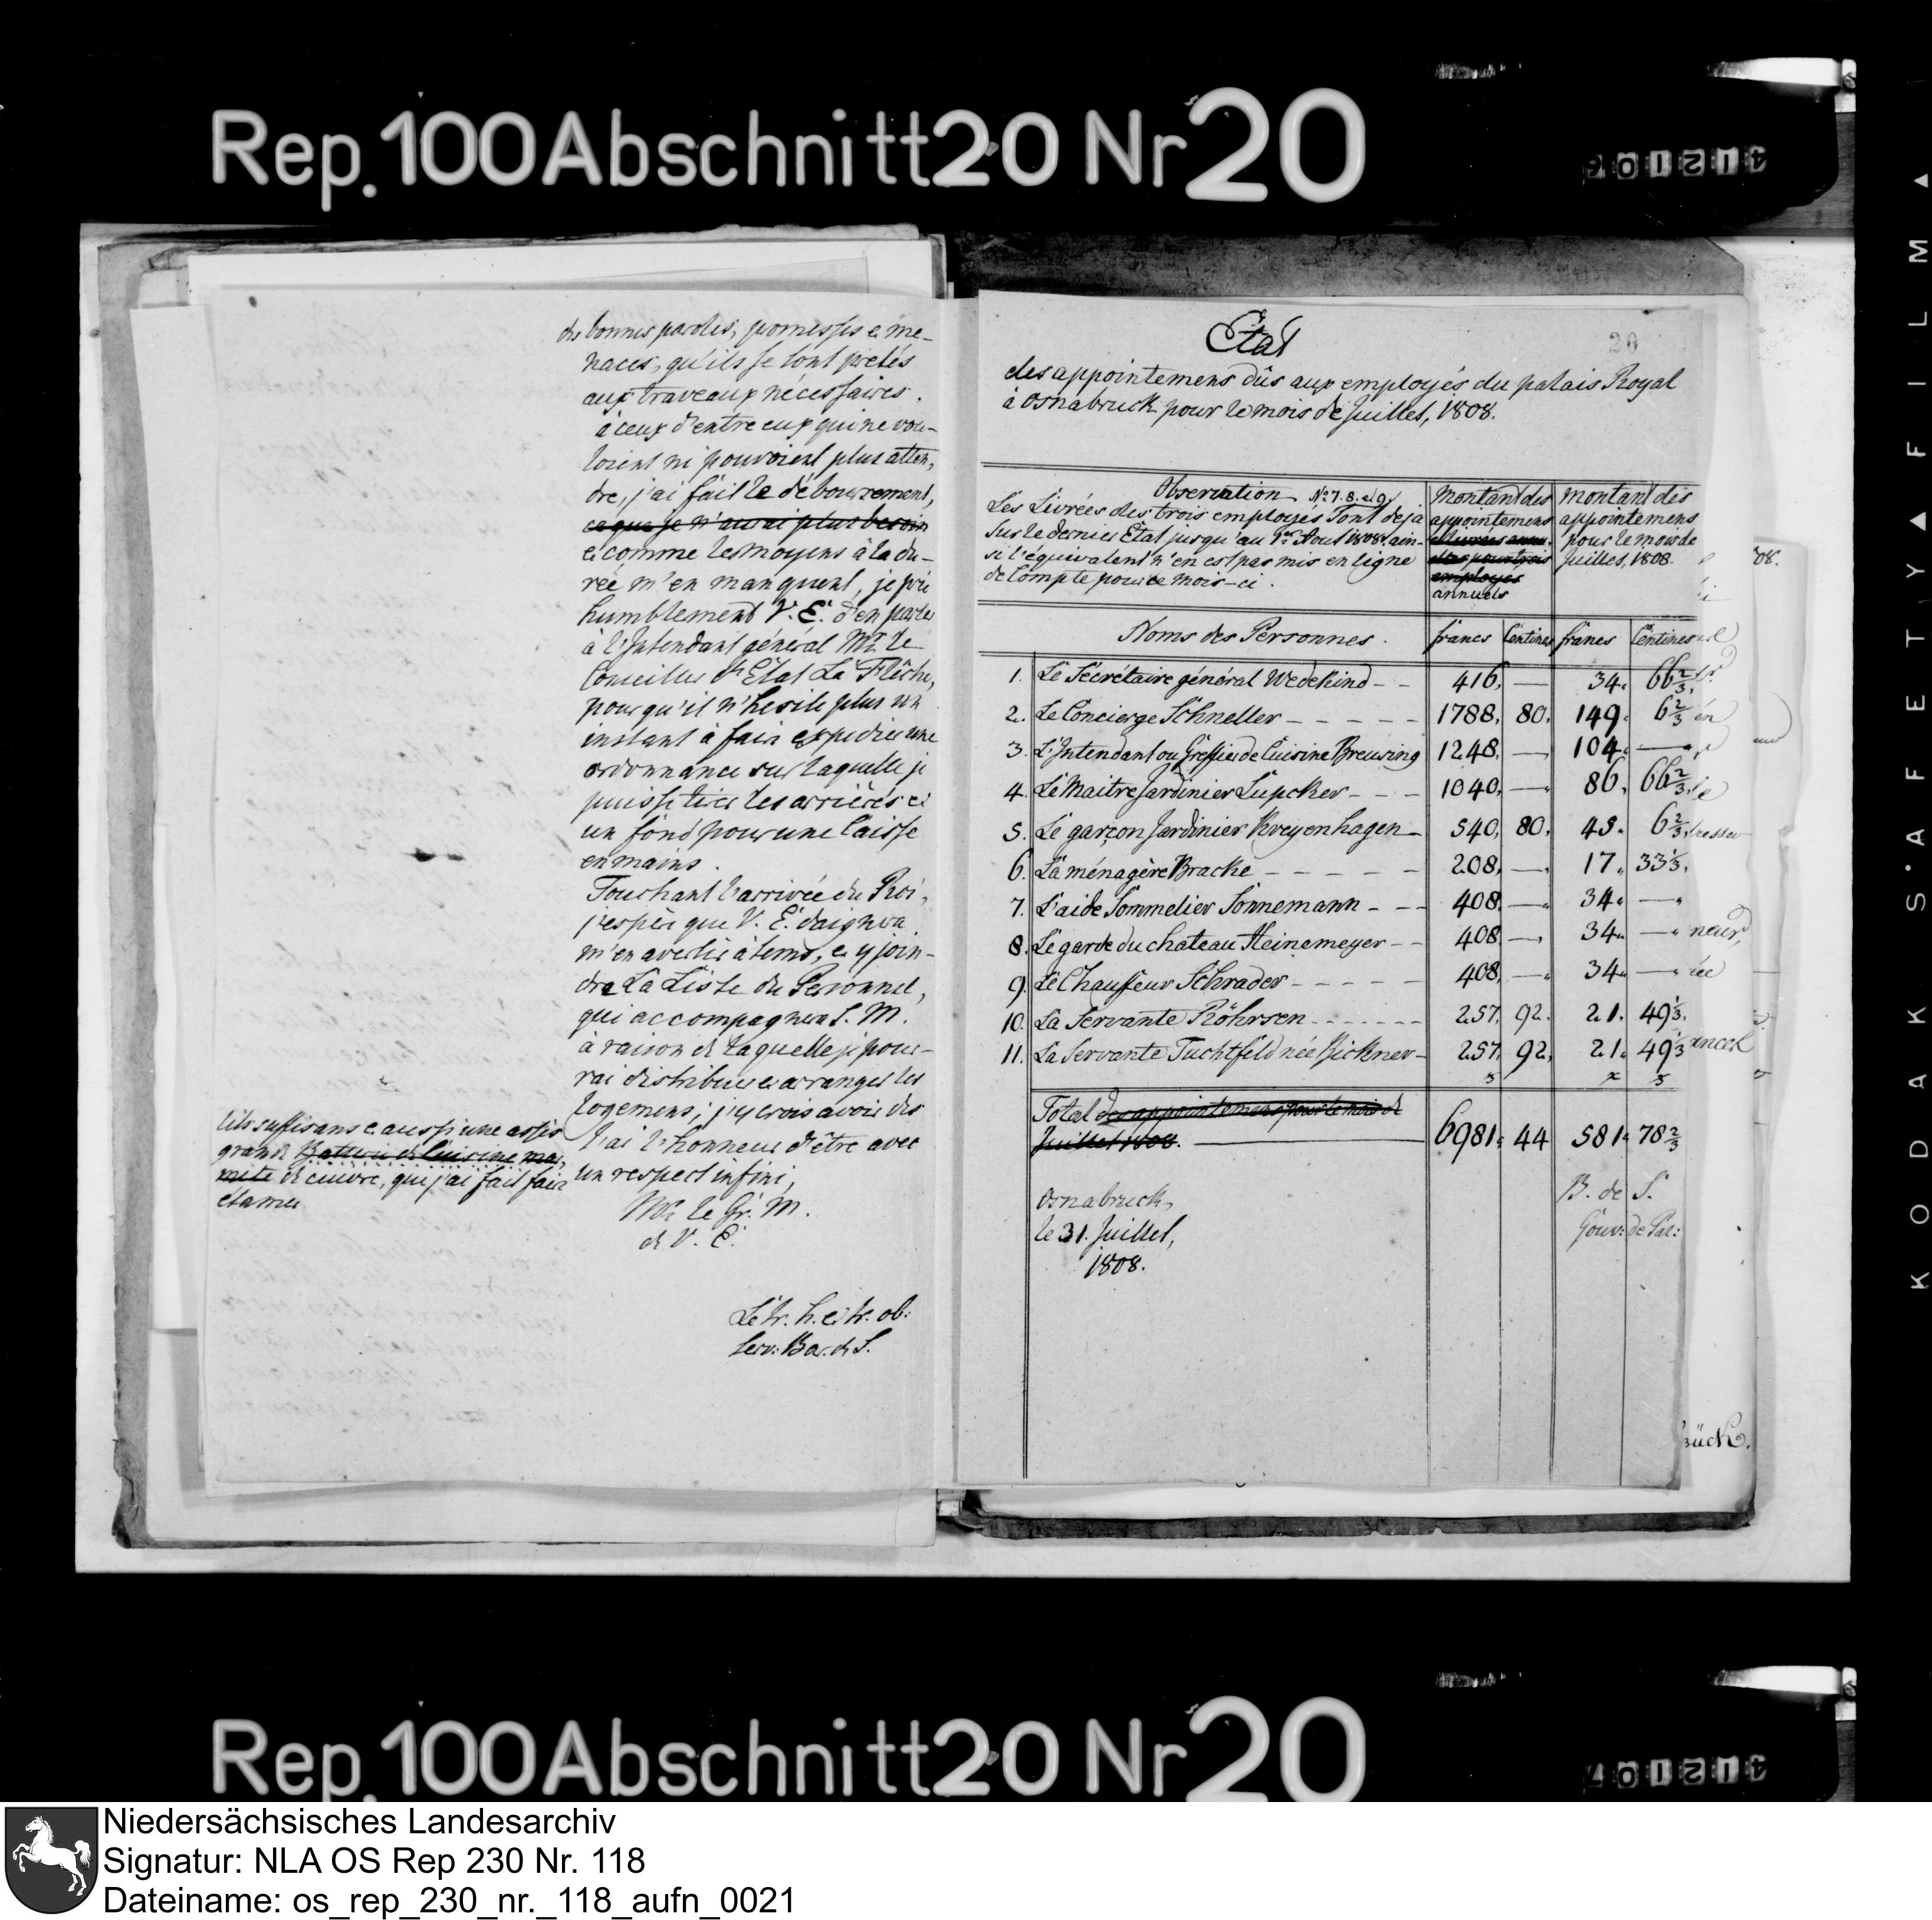 Rep. 100 Abschnitt 20 Nr 20
des bonnes paroles, promesses e me-
naces, qu'ils se sont pretés
aux traveaux nécessaires.
à ceux d'entre eux qui ne vou-
loient ni pouvoient plus atten-
dre, j'ai fait le déboursement,
ce que je n'aurai plus besoin
et comme les moyens à la du-
rée m'en manquent, je prie
humblement V. E. d'en parler
à l'Intendant général Mr. le
Conseiller d'Etat La Flêche,
pour qu'il n'hesite plus un
instant à faire expedier une
ordonnance sur laquelle je
puisse tirer les arriérés et
un fond pour une Caisse
en mains.
Touchant l'arrivée du Roi,
j'espère que V. E. daignera
m'en avertir à tems, e y join-
dre La Liste du Personnel,
qui accompagnera S. M.
à raison de laquelle je pour-
rai distribuer e arranger les
logemens; j'y crois avoir des
lits suffisans e aussi une assés
grande Batterie de Cuisine mar-
mite de cuivre, que j'ai fait faire
étamer
J'ai l'honneur d'être avec
un respect infini,
Mr. le Gr. M.
de V. E.
Le tr. h. et tr. ob:
Serv: Bar. de S.
20
Etat
des appointemens dûs aux employés du palais Royal
à Osnabruck pour le mois de Juillet, 1808.
Observation No. 7. 8. et 9.
Les Livrées des trois employés sont deja
sur le dernier Etat jusqu'au 1er Aout 1808. ain-
si l'équivalent n'en est pas mis en ligne
de Compte pour ce mois-ci.
Montant des
appointemens
et livrées annu-
elles pour trois
employes
annuels
Montant des
appointemens
pour le mois de
Juillet, 1808.
Noms des Personnes. francs Centimes francs Centimes
1. Le Sécrétaire général Wedekind - - 416, — 34. 66 2/3.
2. Le Concierge Schneller - - - - - 1788, 80. 149. 6 2/3
3. L'Intendant ou Greffier de Cuisine Breusing 1248, — 104. —
4. Le Maitre Jardinier Lüpcker - - - 1040, — 86, 66 2/3,
5. Le garçon Jardinier Kreyenhagen - 540, 80. 45. 6 2/3,
6. La ménagère Bracke - - - - - 208, — 17. 33 1/3.
7. L'aide Sommelier Sonnemann - - - 408, — 34. —
8. Le garde du chateau Heinemeyer - - 408, — 34. —
9. Le Chauffeur Schrader - - - - - 408, — 34. —
10. La Servante Röhrsen - - - - - - 257, 92. 21. 49 1/3.
11. La Servante Tuchtfeld née Bickner - 257, 92, 21. 49 1/3
Total des appointemens pour le mois de
Juillet 1808. 6981. 44 581. 78 2/3
Osnabruck,
le 31. Juillet,
1808.
B. de S.
Gouv: de Pal:
808.
neur,
bück.
KODAK S'AFETY FILM
Rep. 100 Abschnitt 20 Nr 20
Niedersächsisches Landesarchiv
Signatur: NLA OS Rep 230 Nr. 118
Dateiname: os_rep_230_nr._118_aufn_0021